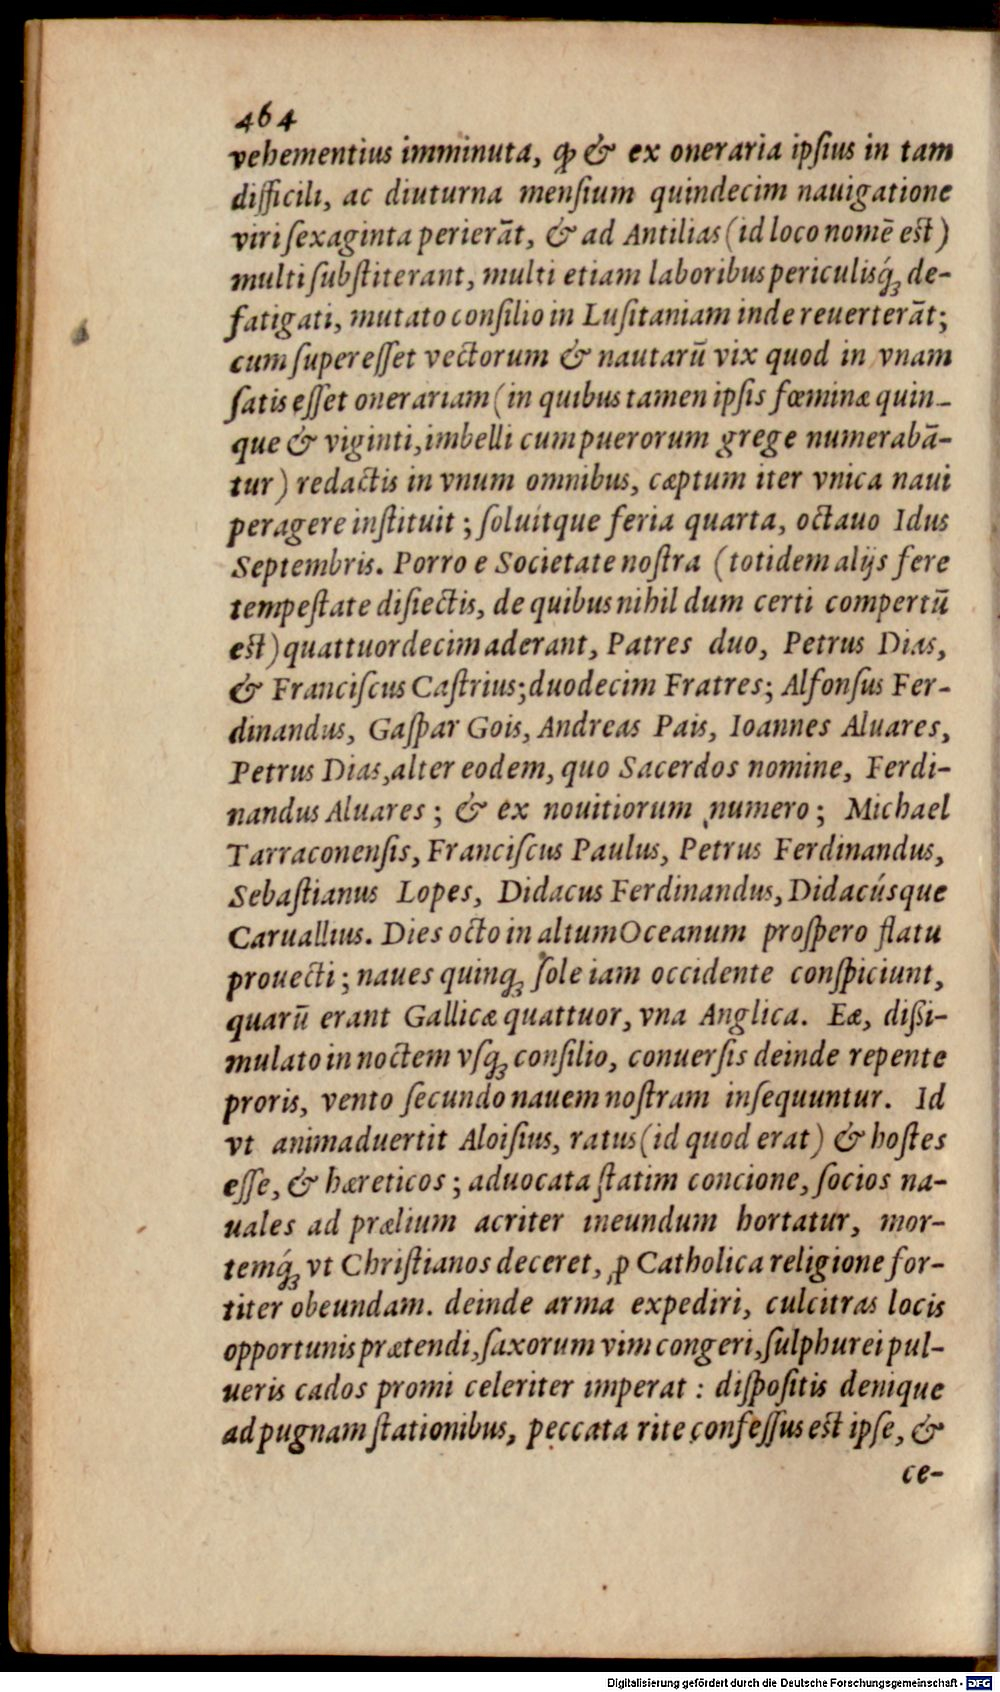 464
vehementius imminuta, ꝙ & ex oneraria ipſius in tam
difficili, ac diuturna menſium quindecim nauigatione
viri ſexaginta perierāt, & ad Antilias (id loco nomē est)
multi ſubſtiterant, multi etiam laboribus periculisq́ꝫ de-
fatigati, mutato conſilio in Luſitaniam inde reuerterāt;
cum ſupereſſet vectorum & nautarū vix quod in vnam
ſatis eſſet onerariam (in quibus tamen ipſis fœminæ quin-
que & viginti, imbelli cum puerorum grege numerabā-
tur) redactis in vnum omnibus, cæptum iter vnica naui
peragere inſtituit; ſoluitque feria quarta, octauo Idus
Septembris. Porro e Societate noſtra (totidem alijs fere
tempeſtate diſiectis, de quibus nihil dum certi compertū
eſt) quattuordecim aderant, Patres duo, Petrus Dias,
& Franciſcus Caſtrius; duodecim Fratres; Alfonſus Fer-
dinandus, Gaſpar Gois, Andreas Pais, Ioannes Aluares,
Petrus Dias, alter eodem, quo Sacerdos nomine, Ferdi-
nandus Aluares; & ex nouitiorum numero; Michael
Tarraconenſis, Franciſcus Paulus, Petrus Ferdinandus,
Sebaſtianus Lopes, Didacus Ferdinandus, Didacúsque
Caruallius. Dies octo in altum Oceanum proſpero flatu
prouecti; naues quinqꝫ ſole iam occidente conſpiciunt,
quarū erant Gallicæ quattuor, vna Anglica. Eæ, diſsi-
mulato in noctem vſqꝫ conſilio, conuerſis deinde repente
proris, vento ſecundo nauem noſtram inſequuntur. Id
vt animaduertit Aloiſius, ratus (id quod erat) & hoſtes
eſſe, & hæreticos; aduocata ſtatim concione, ſocios na-
uales ad prælium acriter ineundum hortatur, mor-
temq́ꝫ vt Chriſtianos deceret, ꝓ Catholica religione for-
titer obeundam. deinde arma expediri, culcitras locis
opportunis prætendi, ſaxorum vim congeri, ſulphurei pul-
ueris cados promi celeriter imperat: diſpoſitis denique
ad pugnam ſtationibus, peccata rite confeſſus eſt ipſe, &
ce-
Digitalisierung gefördert durch die Deutsche Forschungsgemeinschaft - DFG